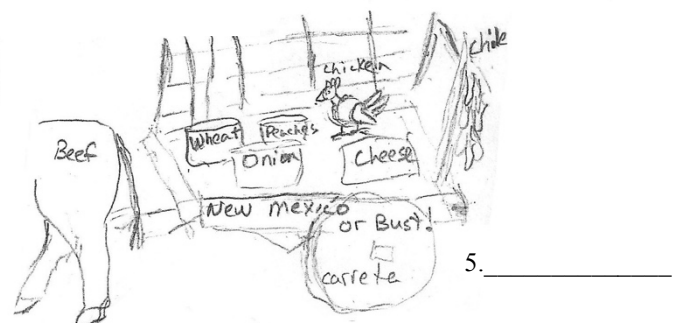 chile
chicken
Wheat
Peaches
Beef
Onion
Cheese
New Mexico
or Bust!
carreta
5.______________